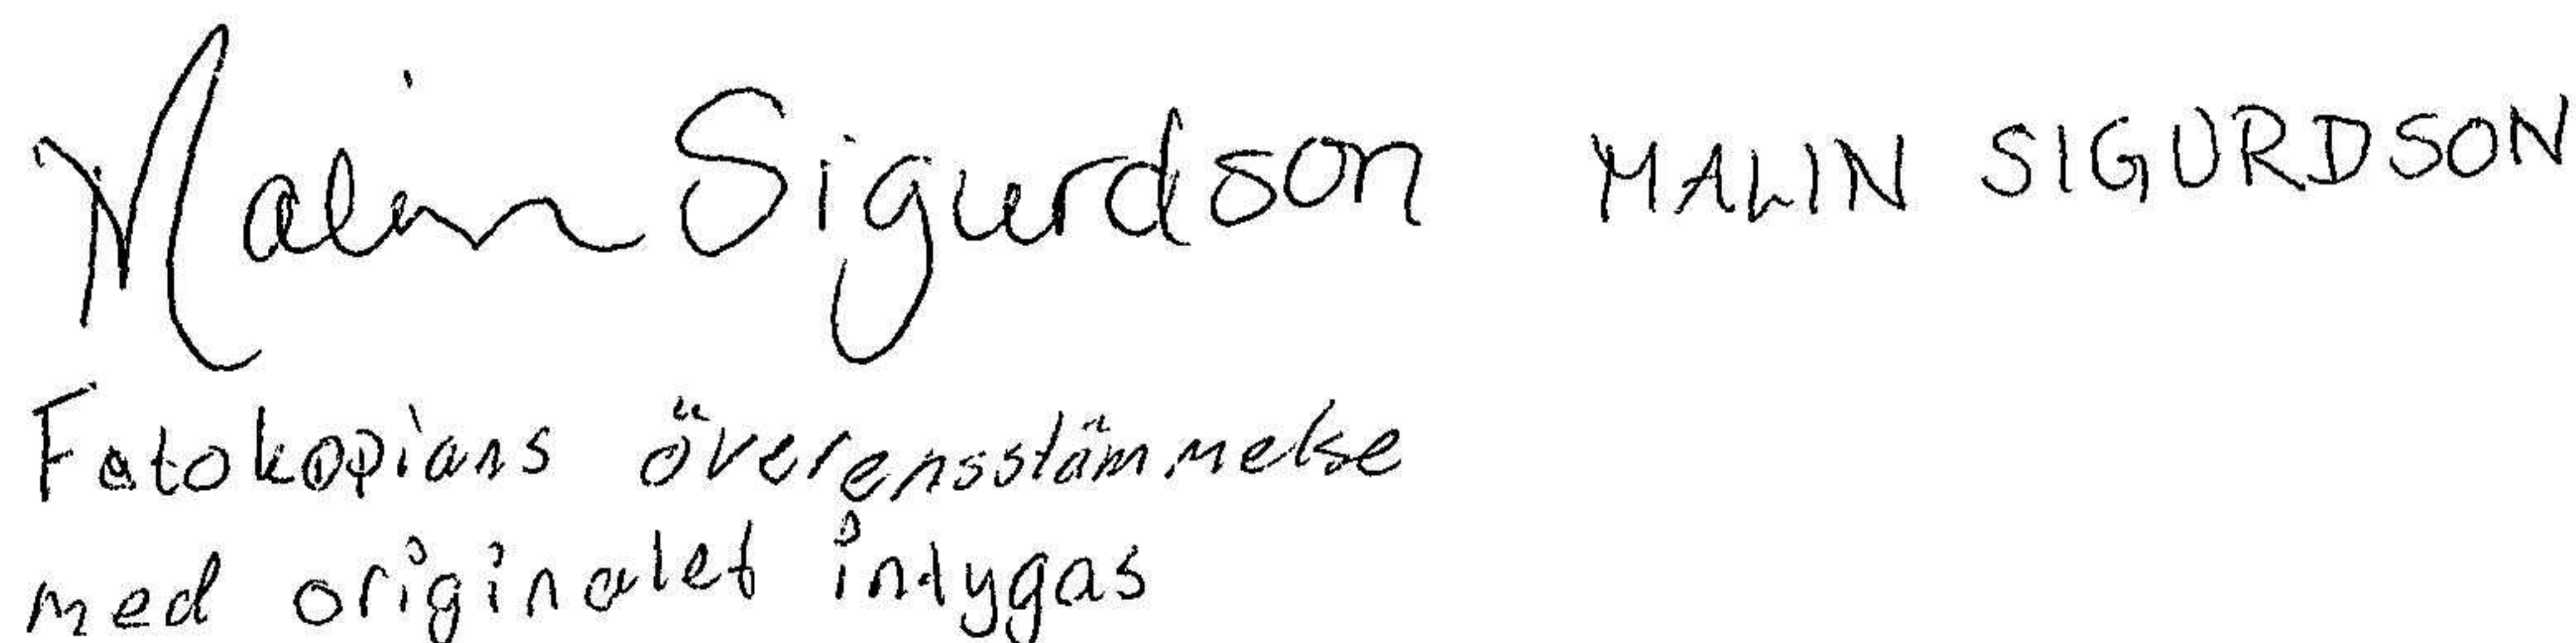 Malin Sigurdson MALIN SIGURDSON
Fotokopians överensstämmelse
med originalet intygas